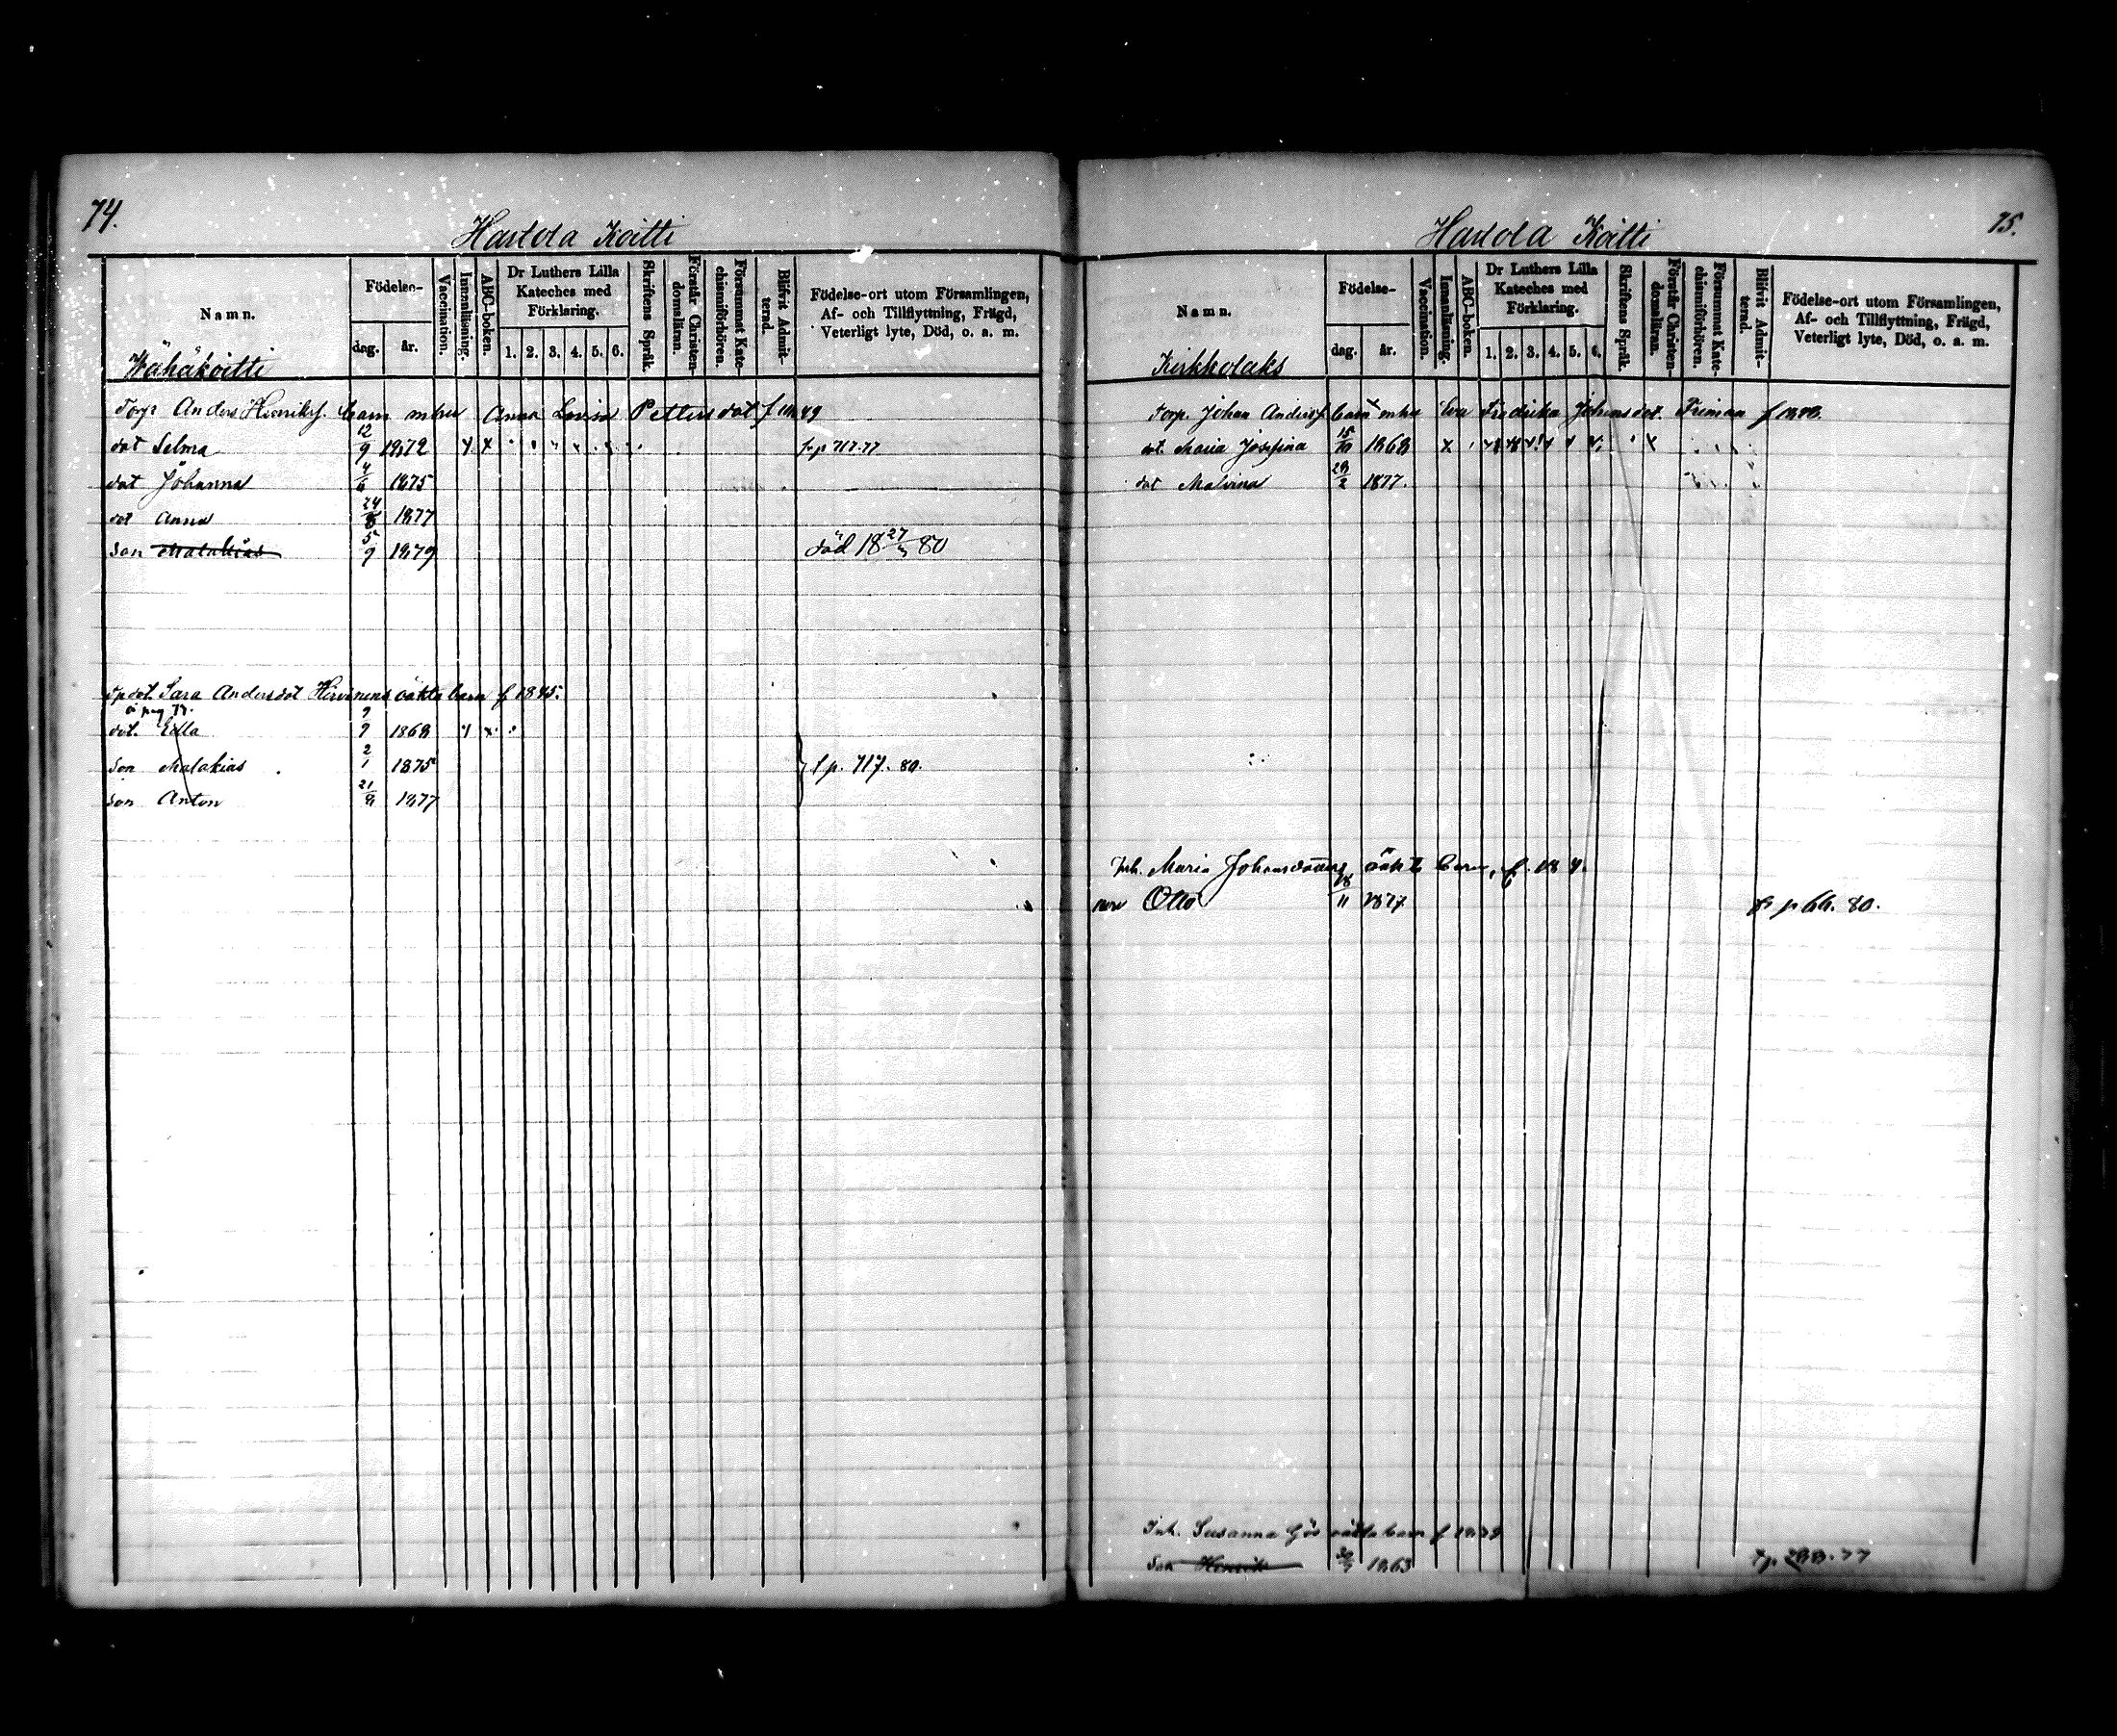 74.
Hartola Koitti
Namn.
Födelse-
dag.
år.
Vaccination.
Innanläsning.
ABC-boken.
Dr Luthers Lilla
Kateches med
Förklaring.
1. 2. 3. 4. 5. 6.
Skriftens Språk.
Förstår Christen-
domsläran.
Försummat Kate-
chismiförhören.
Blifvit Admit-
terad.
Födelse-ort utom Församlingen,
Af- och Tillflyttning, Frägd,
Veterligt lyte, Död, o. a. m.
Wähäkoitti
Torp Anders Henriks. barn m hu Anna Lovisa Petters dot f 1849
dot Selma 12/9 1872 fr p 717.77
dot Johanna 1875
dot Anna 24/8 1877
son Malakias 5/9 1879 död 18 27/ 80
dot. Sara Andersdot Hirvinens oäkta barn f 1845.
dot. Edla 9/9 1868
son Malakias 2/1 1875 f p. 717. 80.
son Anton 21/9 1877
75.
Hartola Koitti
Namn.
Födelse-
dag.
år.
Vaccination.
Innanläsning.
ABC-boken.
Dr Luthers Lilla
Kateches med
Förklaring.
1. 2. 3. 4. 5. 6.
Skriftens Språk.
Förstår Christen-
domsläran.
Försummat Kate-
chismiförhören.
Blifvit Admit-
terad.
Födelse-ort utom Församlingen,
Af- och Tillflyttning, Frägd,
Veterligt lyte, Död, o. a. m.
Kirkkolaks
Torp. Johan Anders barn m hu Eva Fredrika Johansdot. Friman
dot. Maria Josefina 15/10 1868
dot Malvina 28/2 1877.
Inh. Maria Johansdotters oäkta barn, f.
son Otto 18/11 1877 fr p 66. 80.
Inh. Susanna oäkta barn f
son Henrik 1863